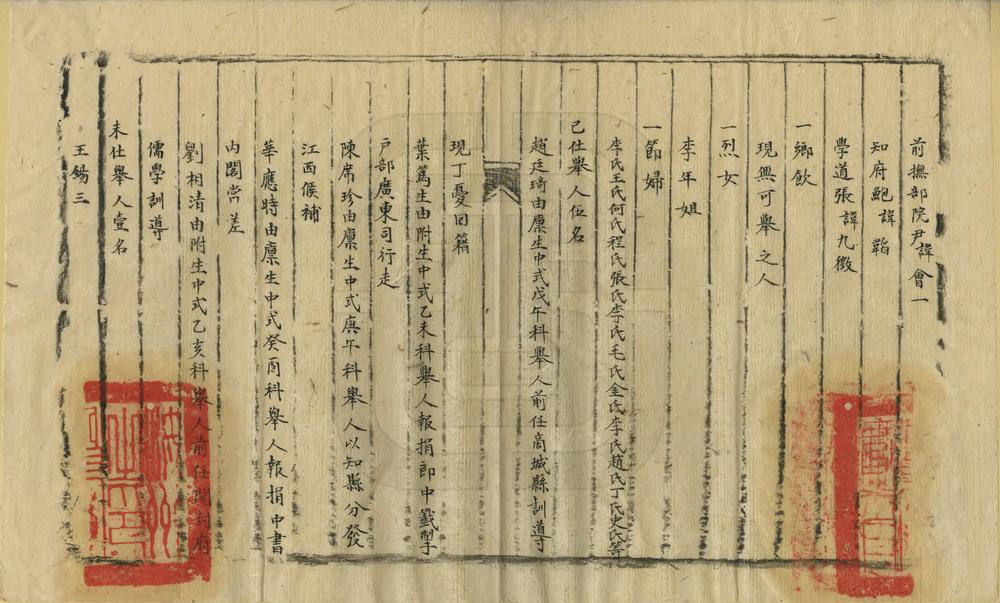 前撫部院尹諱會一
知府鮑諱鞱
學道張諱九徵
一鄉飲
現無可舉之人
一烈女
李年姐
一節婦
李氏王氏何氏程氏張氏李氏毛氏金氏李氏趙氏丁氏史氏等
已仕舉人伍名
趙廷琦由廩生中式戊午科舉人前任商城縣訓導
現丁憂回籍
葉篤生由附生中式乙未科舉人報捐郎中籤掣
戶部廣東司行走
陳席珍由廩生中式庚午科舉人以知縣分發
江西候補
華應時由廩生中式癸酉科舉人報捐中書
內閣當差
劉相清由附生中式乙亥科舉人前任開封府
儒學訓導
未仕舉人壹名
王錫三